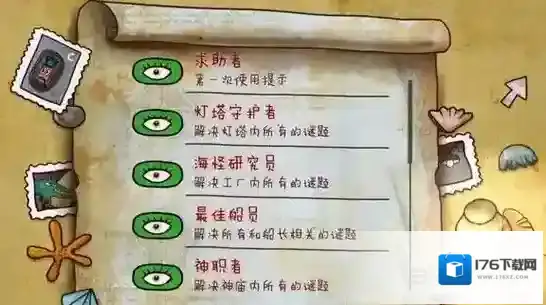 求助者
第一次使用提示
灯塔守护者
解决灯塔内所有的谜题
海怪研究员
解决工厂内所有的谜题
最佳船员
解决所有和船长相关的谜题
神职者
解决神庙内所有的谜题
176下载网
WWW.176XZ.COM